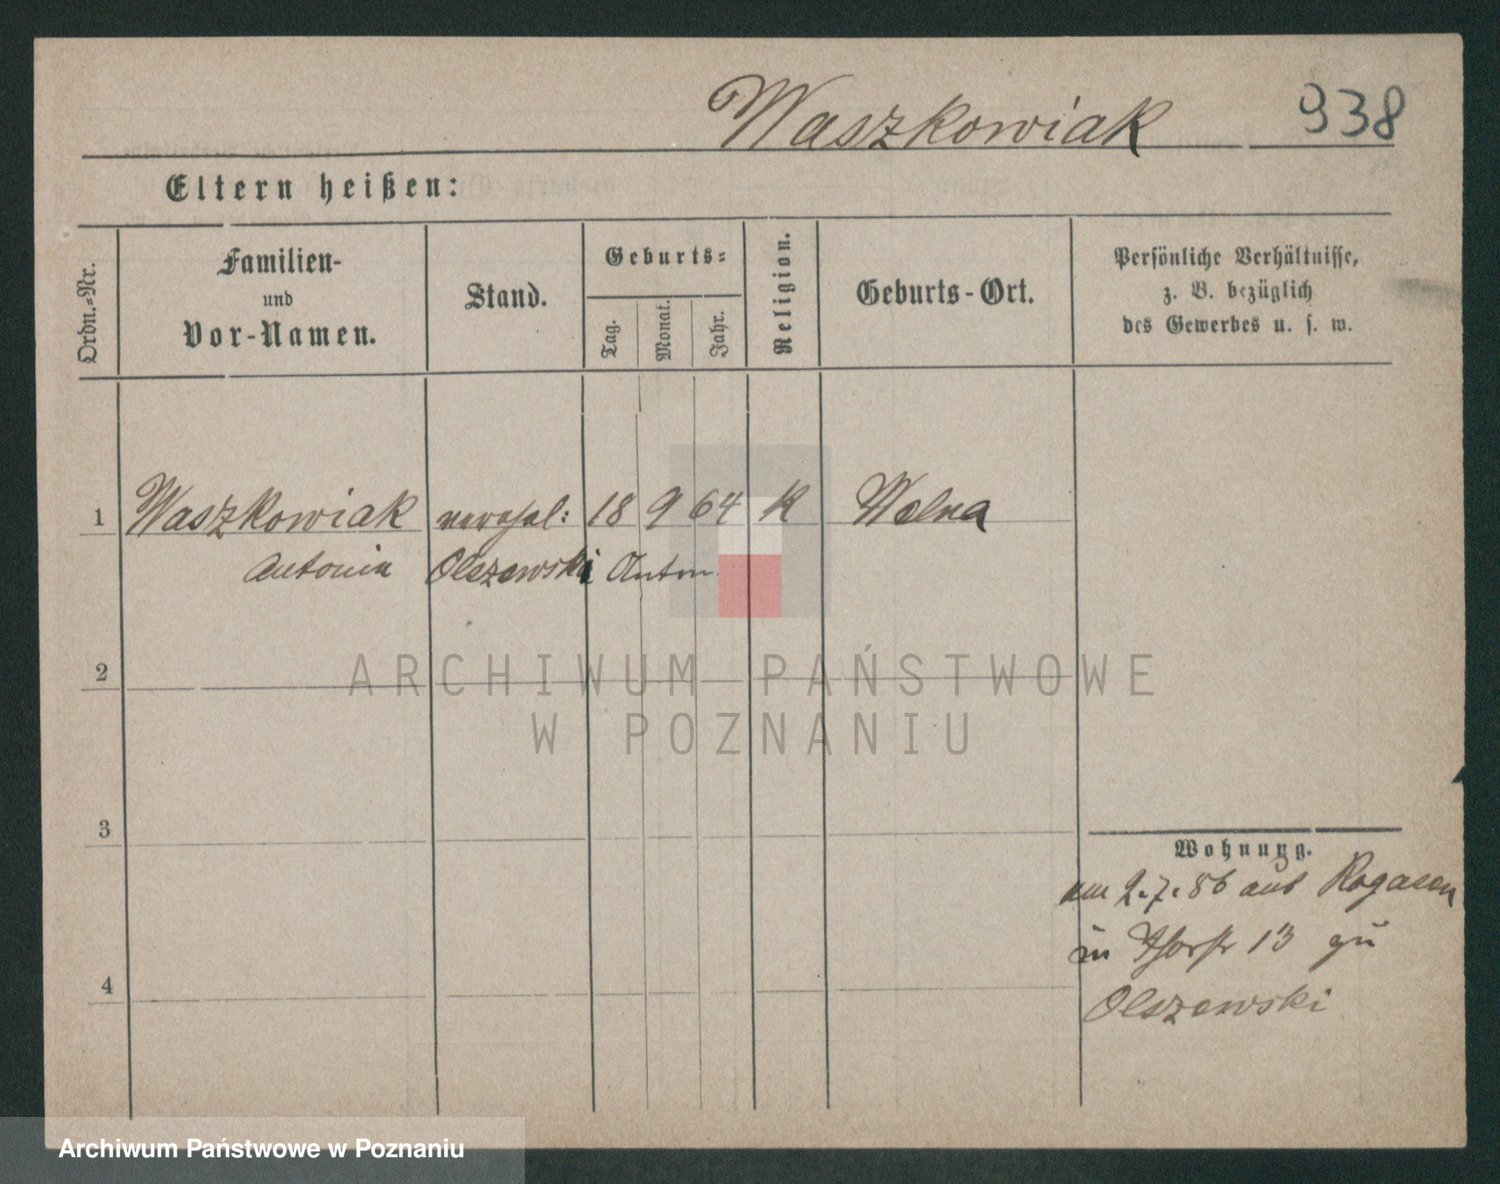 Waszkowiak 938
Eltern heißen:
Ordn.=Nr.
Familien-
und
Vor-Namen.
Stand.
Geburts=
Tag.
Monat.
Jahr.
Religion.
Geburts-Ort.
Persönliche Verhältnisse,
z. B. bezüglich
des Gewerbes u. s. w.
1 Waszkowiak 18 9 64 K Welna
Antonia Olszewski Anton
2
ARCHIWUM PAŃSTWOWE
W POZNANIU
3
Wohnung.
am 2.7.86 aus Rogasen
in 13 zu
4
Olszewski
Archiwum Państwowe w Poznaniu